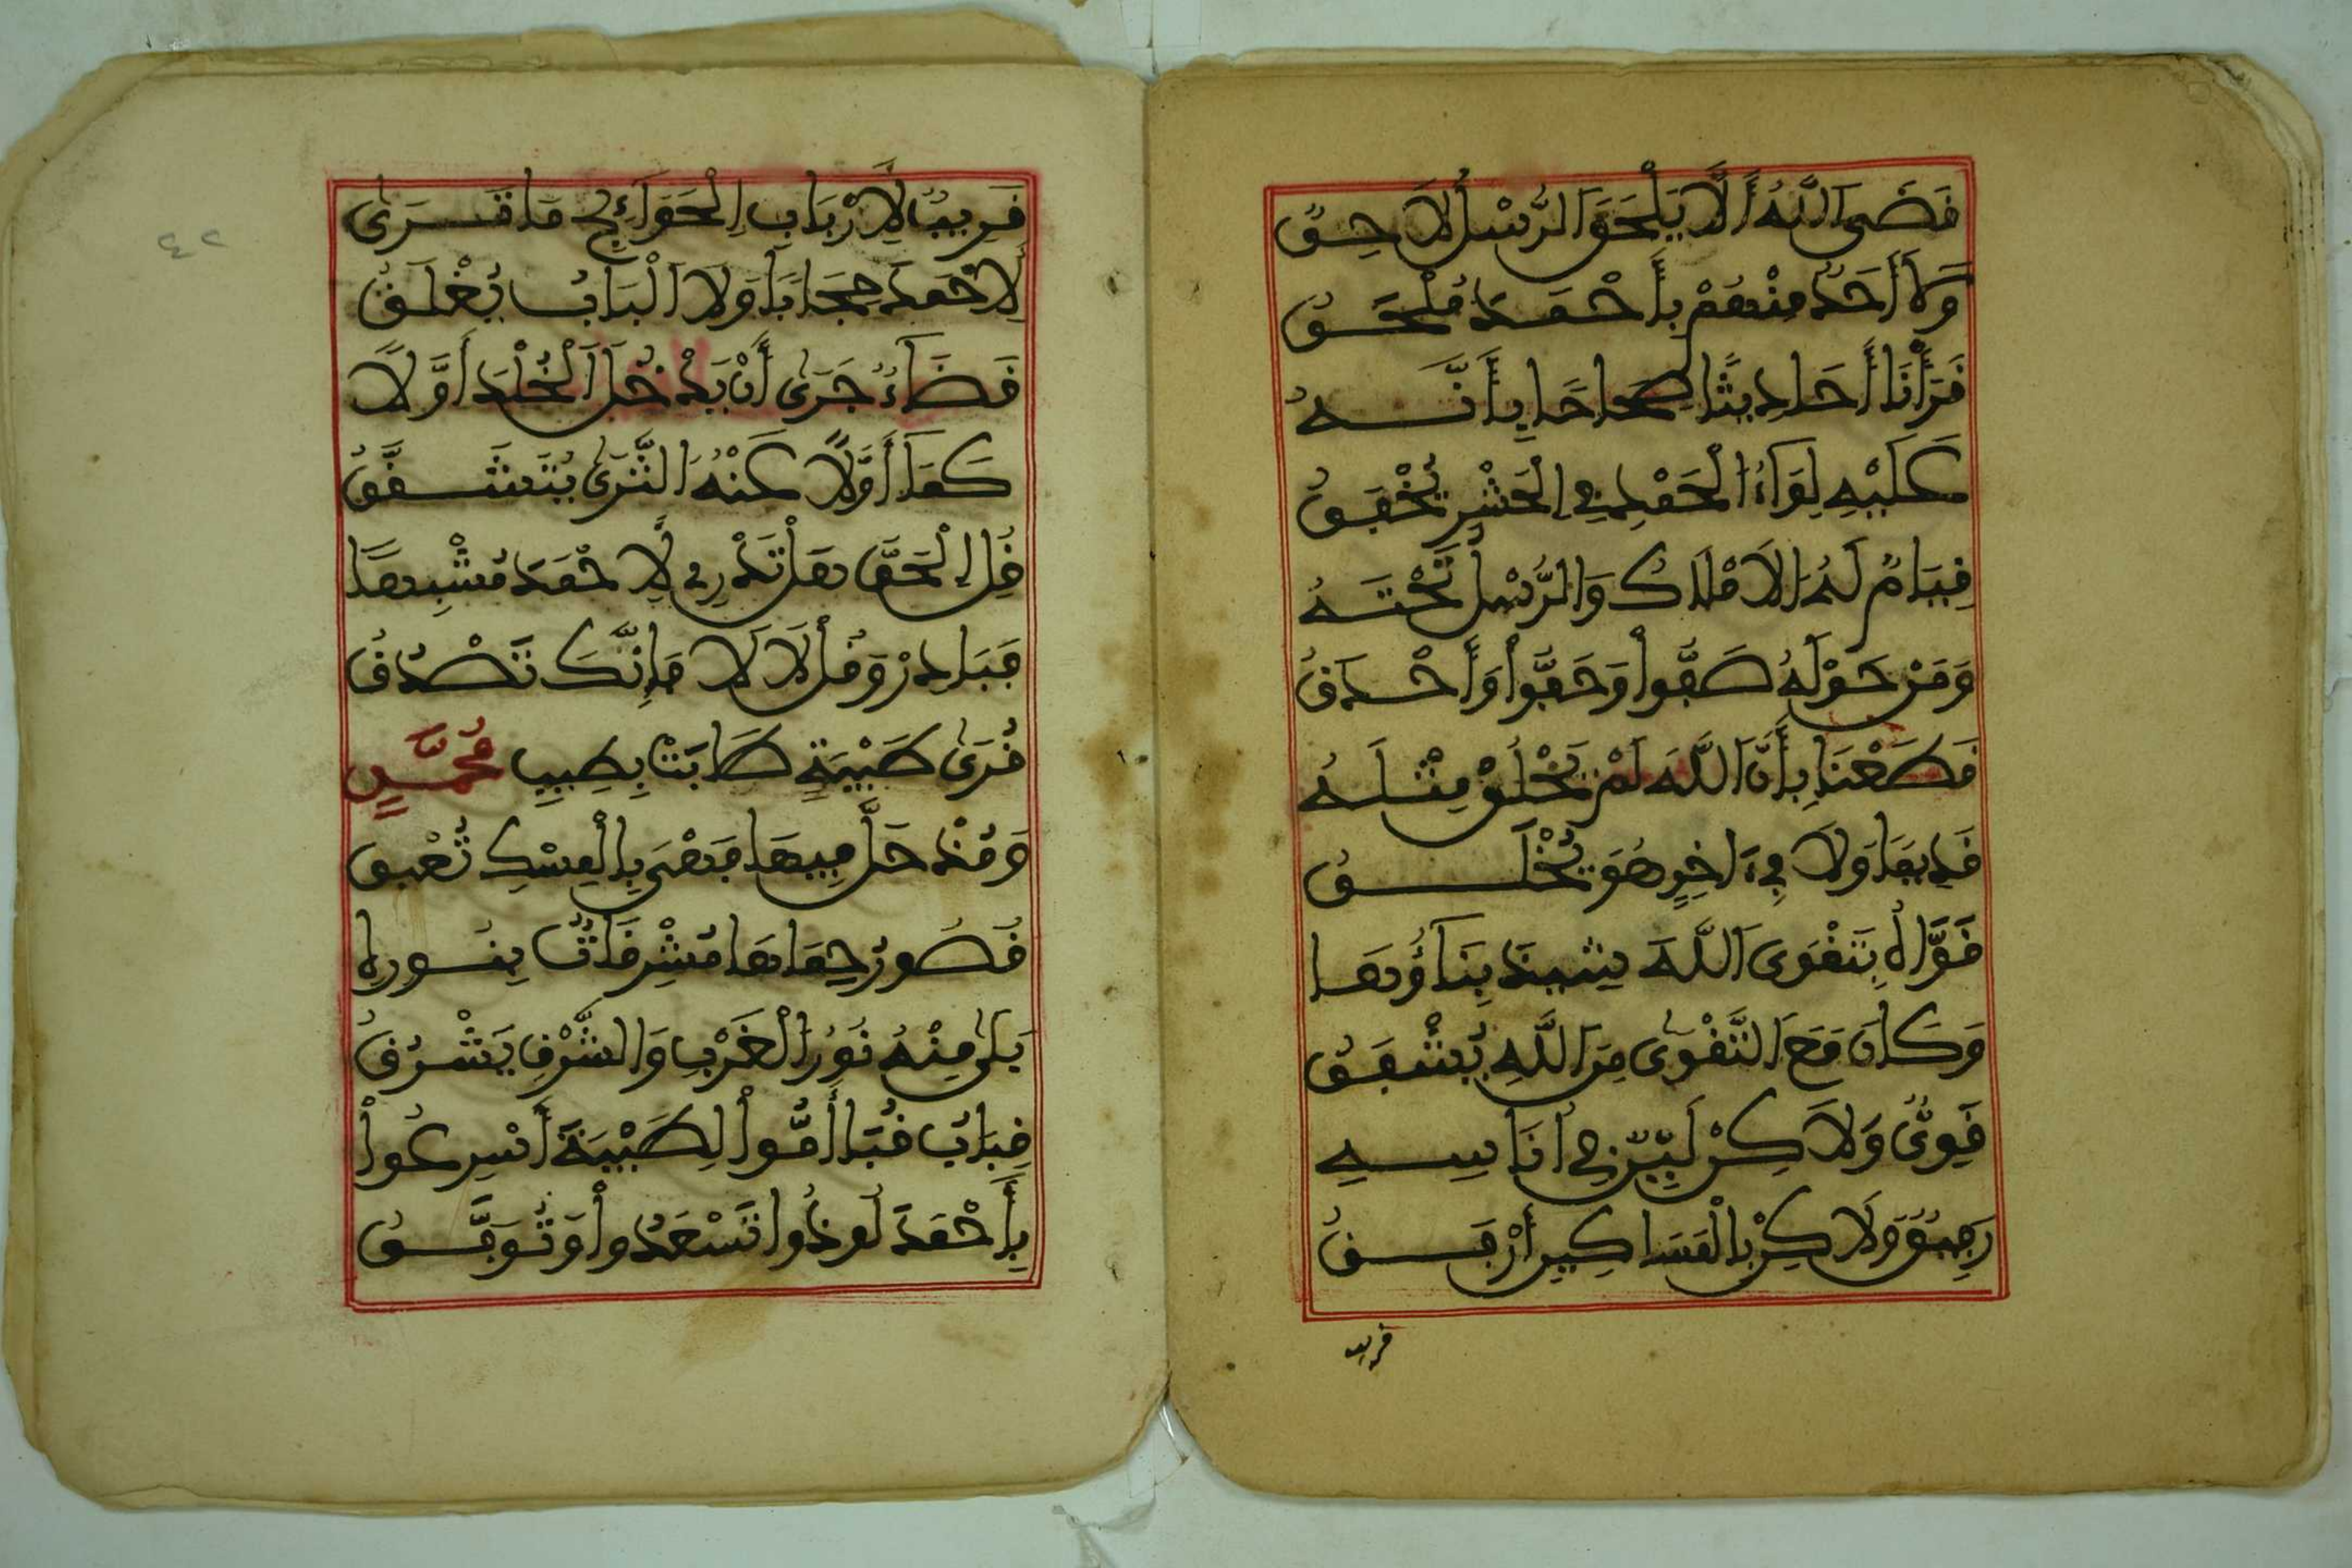 قَضَى اللَّهُ أَلَّا يَلْحَقَ الرُّسْلُ لَاحِقٌ
وَلَا أَحَدٌ مِنْهُمْ بِأَحْمَدَ مُلْحَقُ
قَرَأْنَا أَحَادِيثًا صِحَاحًا بِأَنَّهُ
عَلَيْهِ لِوَاءُ الْحَمْدِ فِي الْحَشْرِ يَخْفِقُ
قِيَامٌ لَهُ الْأَمْلَاكُ وَالرُّسْلُ تَحْتَهُ
وَمَنْ حَوْلَهُ صَفُّوا وَحَفُّوا وَأَحْدَقُ
قَطَعْنَا بِأَنَّ اللَّهَ لَمْ يَخْلُقْ مِثْلَهُ
قَدِيمًا وَلَا فِي ءَاخِرٍ هُوَ يَخْلُقُ
قُوَّاهُ بِتَقْوَى اللَّهَ شِيدَ بِنَاؤُهَا
وَكَانَ مَعَ التَّقْوَى مِنَ اللَّهِ يُشْفِقُ
قَوِيٌّ وَلَاكِنْ لَيِّنٌ فِي أُنَاسِهِ
رَفِيقٌ وَلَاكِنْ بِالْمَسَاكِينِ أَرْفَقُ
قريب
قَرِيبٌ لِأَرْبَابِ الْحَوَائِجِ مَا تَرَى
لِأَحْمَدَ حِجَابًا وَلَا الْبَابُ يُغْلَقُ
قَضَاءٌ جَرَى أَنْ يَدْخُلَ الْخُلْدَ أَوَّلًا
كَمَا أَوَّلًا عَنْهُ الثَّرَى يَتَشَقَّقُ
قُلِ الْحَقَّ هَلْ تَدْرِي لِأَحْمَدَ مُشْبِهًا
فَبَادِرْ وَقُلْ لَا لَا فَإِنَّكَ تَصْدُقُ
قُرَى طَيْبَةٍ طَابَتْ بِطِيبِ مُحَمَّدٍ
وَمُنْذُ حَلَّ فِيهَا فَهْيَ بِالْمِسْكِ تُعْبَقُ
قُصُورُ حِمَاهَا مُشْرِقَاتٌ بِنُورِهِ
بَلَى مِنْهُ نُورُ الْغَرْبِ وَالشَّرْقِ يَشْرُقُ
قِبَابُ قُبَا أُمُّوا لِطَيْبَةَ أَسْرِعُوا
بِأَحْمَدَ لُوذُوا تَسْعَدُوا وَتُوَفَّقُ
٤٢